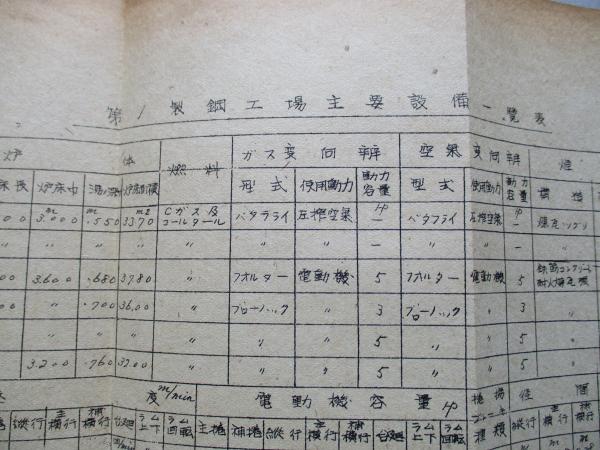 第1製鋼工場主要設備一覧表
炉 体 燃料 ガス変向辨 空気変向辨 煙
床長 炉床巾 湯ノ深 炉床面積 型式 使用動力 動力容量 型式 使用動力 動力容量 構造
00 3.000m m.550 m2 33.70 Cガス及コールタール バタフライ 圧搾空気 IP — バタフライ 圧搾空気 IP —
〃 〃 〃 〃 〃 〃 — 〃 〃 — 〃
00 3.600 .680 37.80 〃 フオルター 電動機 5 フオルター 電動機 5 鉄筋コンクリート
00 〃 .700 36.00 〃 ブローノックス 〃 3 ブローノックス 〃 3 〃
〃 〃 〃 〃 〃 〃 5 〃 〃 5 〃
3.200 .760 32.00 〃 〃 〃 5 〃 〃 5 〃
度 m/min 電動機容量 IP 捲揚
巻 縦行 主横行 補横行 台廻 ラム上下 ラム回転 主捲 補捲 縦行 主横行 補横行 台廻 ラム上下 ラム回転 種類 縦行 横行